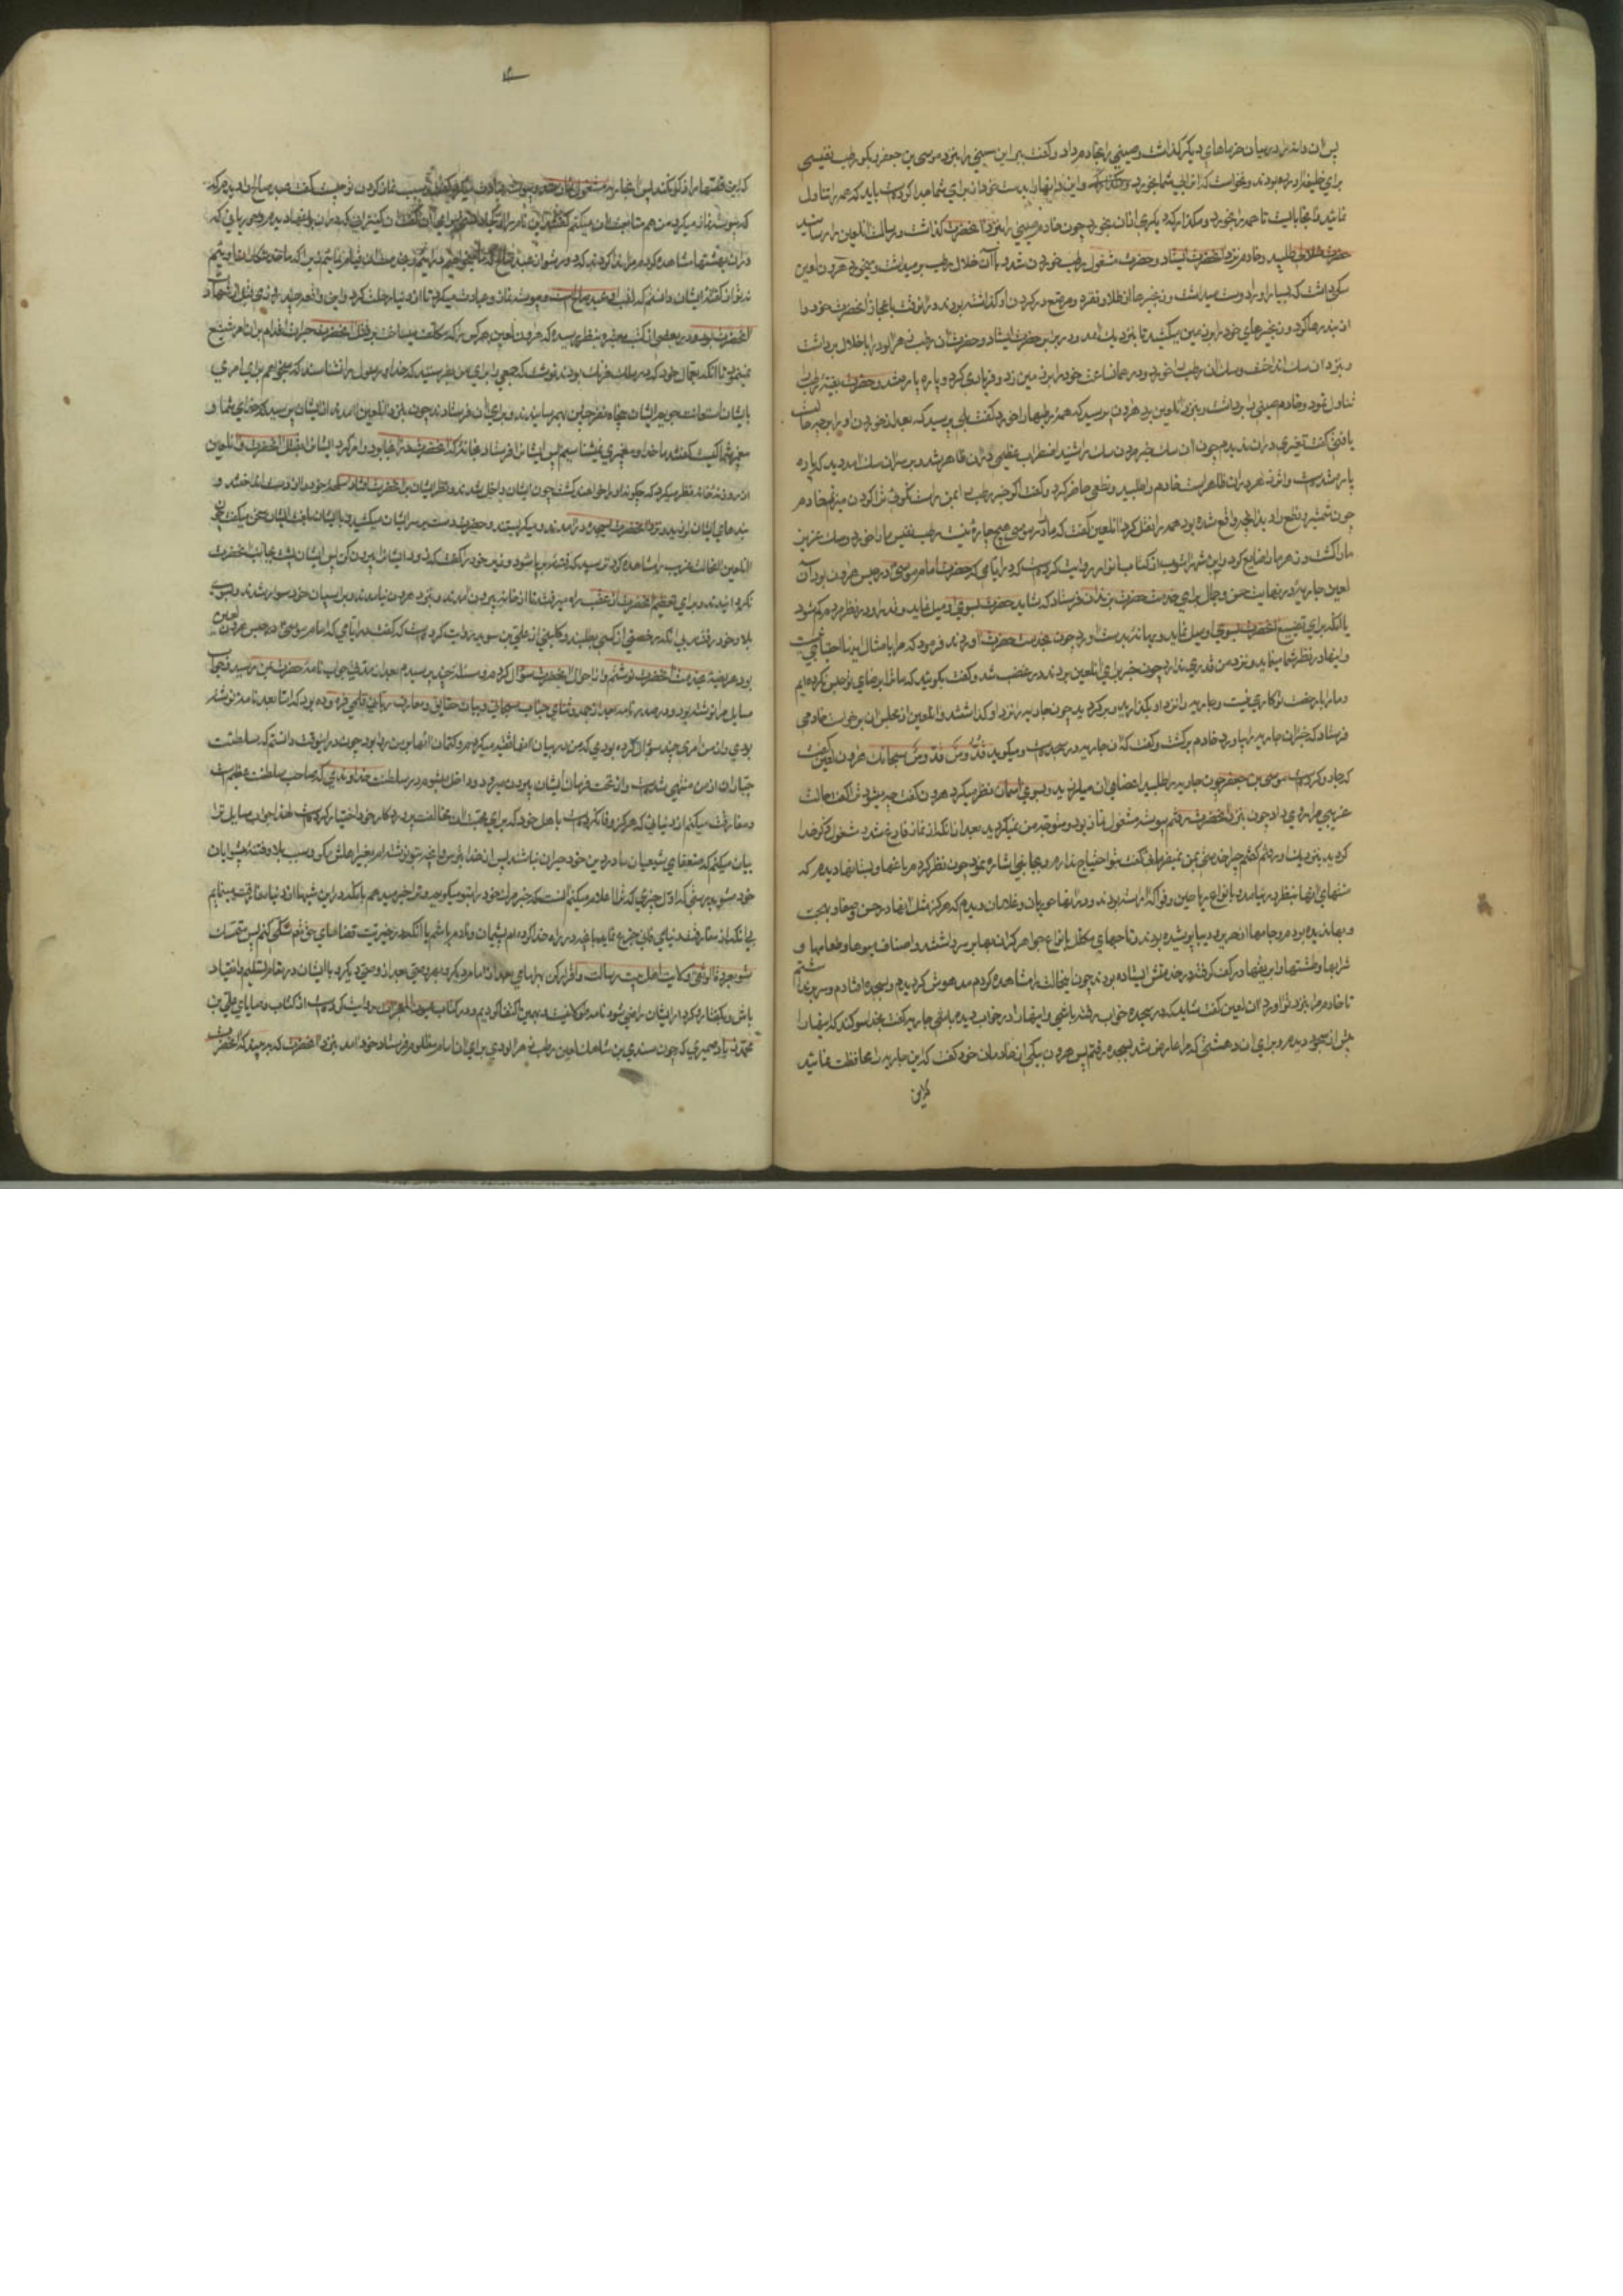 پس آن دانه را در میان خرماهای دیگر گذاشت و صینی را بخادم داد و گفت ببر این سینی را بنزد موسی بن جعفر و بگو رطب نفیسی
برای خلیفه آورده بودند و نخواست که از این بی شما بخورد و این دانها را بدست خود از برای شما جدا کرده است باید که همه را تناول
نمائید و آنجا بایست تا همه را بخورد و مگذار که دیگری از آن بخورد چون خادم صینی را بنزد آنحضرت گذاشت و رسالت آنلعین را رسانید
حضرت خلالی طلبید و خادم نزد آنحضرت ایستاد و حضرت مشغول رطب خوردن شد و با آن خلال رطب بر میداشت و میخورد و هارون لعین
سکی داشت که بسیار او را دوست میداشت و زنجیرها از طلا و نقره و مرصع در گردن او گذاشته بودند در آنوقت باعجاز آنحضرت خود را
از بند رها کرد و زنجیرهای خود را بر زمین میکشید تا بنزدیک آمد و در برابر حضرت ایستاد و حضرت آن رطب زهرآلود را با خلال برداشت
و نزد آن سک انداخت و سک آن رطب را خورد و در همان ساعت خود را بر زمین زد و فریادی کرد و پاره پاره شد و حضرت بقیه رطب را
تناول نمود و خادم صینی را برداشت و بنزد آنلعین برد هارون پرسید که همه رطبها را خورد گفت بلی پرسید که بعد از خوردن او را بر چه حالت
یافتی گفت تغییری در آن ندیدم چون آن سک خبر مردن سک را شنید اضطراب عظیمی در آن ظاهر شد و بر سر آن سک آمد دید که پاره
پاره شده است و اثر زهر در آن ظاهر است خادم را طلبید و نطعی حاضر کرد و گفت اگر خبر رطب را بمن راست نگوئی ترا گردن میزنم خادم
چون شمشیر و نطع را دید آنچه واقع شده بود همه را نقل کرد آنلعین گفت که ما را در موسی هیچ چاره نیست رطب نفیس ما را خورد و سک عزیز
ما را کشت و زهر ما را ضایع کرد و ابن شهرآشوب از کتاب انوار روایت کرده است که در ایامی که حضرت امام موسی در حبس هارون بود آن
لعین جاریه در نهایت حسن و جمال برای خدمت حضرت بزندان فرستاد که شاید حضرت بسوی او میل نماید و قدر او در نظر مردم کم شود
یا آنکه برای تضییع آنحضرت بسوی او میل نماید و بهانه بدست آورد چون بخدمت حضرت آوردند فرمود که مرا بامثال اینها احتیاجی نیست
و اینها در نظر شما مینماید و نزد من قدری ندارد چون خبر برای آنلعین بردند در غضب شد و گفت بگوئید که ما ترا برضای تو حبس نکرده‌ایم
و ما را با رخصت تو کاری نیست و جاریه را نزد او بگذارید و برگردید چون جاریه را نزد او گذاشتند و آنلعین از مجلس آن برخاست خادمی
فرستاد که خبر آن جاریه را بیاورد خادم برگشت و گفت که آن جاریه در سجده است و میگوید قُدّوسٌ قُدّوسٌ سبحانک هارون لعین گفت
که جادو کرده است موسی بن جعفر چون جاریه را طلبید اعضای آن میلرزید و بسوی آسمان نظر میکرد هارون گفت چه میشود ترا گفت حالت
غریبی مرا روی داد چون بنزد آنحضرت رفتم پیوسته مشغول نماز بود و متوجه من نمیگردید بعد از آنکه از نماز فارغ شد و مشغول ذکر خدا
گردید بنزدیک او رفتم گفتم چرا خدمتی بمن نمیفرمائی گفت بتو احتیاج ندارم و بجانبی اشاره نمود چون نظر کردم باغها و بستانها دیدم که
منتهای آنها بنظر در نمیامد و بانواع ریاحین و فواکه آراسته بودند و در آنها حوریان و غلامان دیدم که هرگز مثل آنها در حسن و صفا و بهجت
و بها ندیده بودم و جامها از حریر و دیبا پوشیده بودند و تاجهای مکلل بانواع جواهر گران بها بر سر داشتند و اصناف میوها و طعامها و
شرابها و طشتها و ابریقها در کف گرفته در خدمتش ایستاده بودند چون اینحالت را مشاهده کردم مدهوش گردیدم و بسجده افتادم و سر برنداشتم
تا خادم مرا بنزد تو آورد آن لعین گفت شاید که در سجده خواب رفته باشی و اینها را در خواب دیده باشی جاریه گفت بخدا سوگند که اینها را
پیش از سجود دیدم و برای آن دهشتی که مرا عارض شد بسجده رفتم پس هارون بیکی از خادمان خود گفت که این جاریه را محافظت نمائید
که این
که این قصه را ذکر نکند پس آن جاریه مشغول نماز شد و پیوسته نماز گفتند سبب نماز کردن تو چیست گفت عبد صالح را دیدم که
که پیوسته نماز میکرد من هم متابعت آن میکنم گفتند این نام را از کجا دانستی
از ایشان دانستم که لقب او عبد صالح است و پیوسته نماز و عبادت میکرد تا از دنیا رحلت کرد و این واقعه چند روزی قبل از شهادت
آنحضرت بود و در بعضی از کتب معتبره بنظر رسیده که هارون لعین هر کس را که تکلیف میساخت بر قتل آنحضرت جرات اقدام بر آن امر شنیع
نمینمود تا آنکه بعمال خود که در ملک فرنگ بودند نوشت که جمعی را برای من بفرستید که خدا و رسول را نشناسند که میخواهم برای امری
بایشان استعانت جویم ایشان پنجاه نفر چنین بهم رسانیدند و برای آن فرستادند چون بنزد آنلعین آمدند از ایشان پرسید که خدای شما و
پیغمبر شما کیست گفتند ما خدا و پیغمبری نمیشناسیم پس ایشان را فرستاد بخانه که آنحضرت در آنجا بود و امر کرد ایشان را بقتل آنحضرت و آنلعین
از روزنه خانه نظر میکرد که چگونه او را خواهند کشت چون ایشان داخل شدند و نظر ایشان بر آنحضرت افتاد اسلحه خود را از دست انداختند و
بندهای ایشان لرزید و نزد آنحضرت بسجده درآمدند و میگریستند و حضرت دست بر سر ایشان میکشید و با ایشان بلغت ایشان سخن میگفت چون
آنلعین اینحالت غریب را مشاهده کرد ترسید که فتنه برپا شود و وزیر خود را گفت که زود ایشان را بیرون کن پس ایشان پشت بجانب آنحضرت
نگردانیدند و برای تعظیم آنحضرت از عقب راه میرفتند تا از خانه بیرون آمدند و نزد هارون نیامدند و بر اسبان خود سوار شدند و بسوی
بلاد خود رفتند بی آنکه رخصتی از کسی بطلبند و کلینی از علی بن سوید روایت کرده است که گفت در ایامی که امام موسی در حبس هارون لعین
بود عریضه بخدمت آنحضرت نوشتم و از احوال آنحضرت سؤال کردم و مسئله چند پرسیدم بعد از مدتی جواب نامه حضرت بمن رسید و جواب
مسایل مرا نوشته بود و در صدر نامه بعد از حمد و ثنای جناب سبحانی و بیان حقایق و معارف ربانی قلمی فرموده بود که اما بعد نامه نوشته
بودی و از من امری چند سؤال کرده بودی که من در بیان آنها تقیه میکردم و کتمان آنها بر من روا بود چون در اینوقت دانستم که سلطنت
جباران از من منتهی شده است و از تحت فرمان ایشان بیرون میروم و داخل میشوم در سلطنت خداوندی که صاحب سلطنت عظیم است
و مفارقت میکنم از دنیائی که هرگز وفا نکرده است با اهل خود که برای محبت آن مخالفت پروردگار خود اختیار کرده‌اند لهذا جواب مسایل ترا
بیان میکنم که ضعفای شیعیان ما در دین خود حیران نباشند پس از خدا بترس و آنچه بتو نوشته‌ام بغیر اهلش مگو و سبب بلا و فتنه پیشوایان
خود مشو بدرستی که اول چیزی که ترا اعلام میکنم آنست که خبر مرگ خود را بتو میگویم و ترا خبر میدهم بآنکه در این شبها از دنیا مفارقت مینمایم
بی آنکه از مفارقت دنیای فانی جزع نمایم یا از آنچه در راه خدا کرده‌ام پشیمان و نادم باشم یا آنکه در خیریت قضاهای حق تعالی شکی کنم پس متمسک
شو بعروة الوثقی ولایت اهل بیت رسالت و اقرار کن بهر امامی بعد از امام دیگر و بهر وصی بعد از وصی دیگر و با ایشان در مقام تسلیم و انقیاد
باش و بگفتار و کردار ایشان راضی شو نامه طولانیست بهمین اکتفا کردیم و در کتاب عیون المعجزات روایت کرده است از کتاب وصایای علی بن
محمد بن زیاد صیمری که چون سندی بن شاهک لعین رطب زهرآلودی برای آن امام مظلوم فرستاد خود آمد بنزد آنحضرت که ببیند که آنحضرت